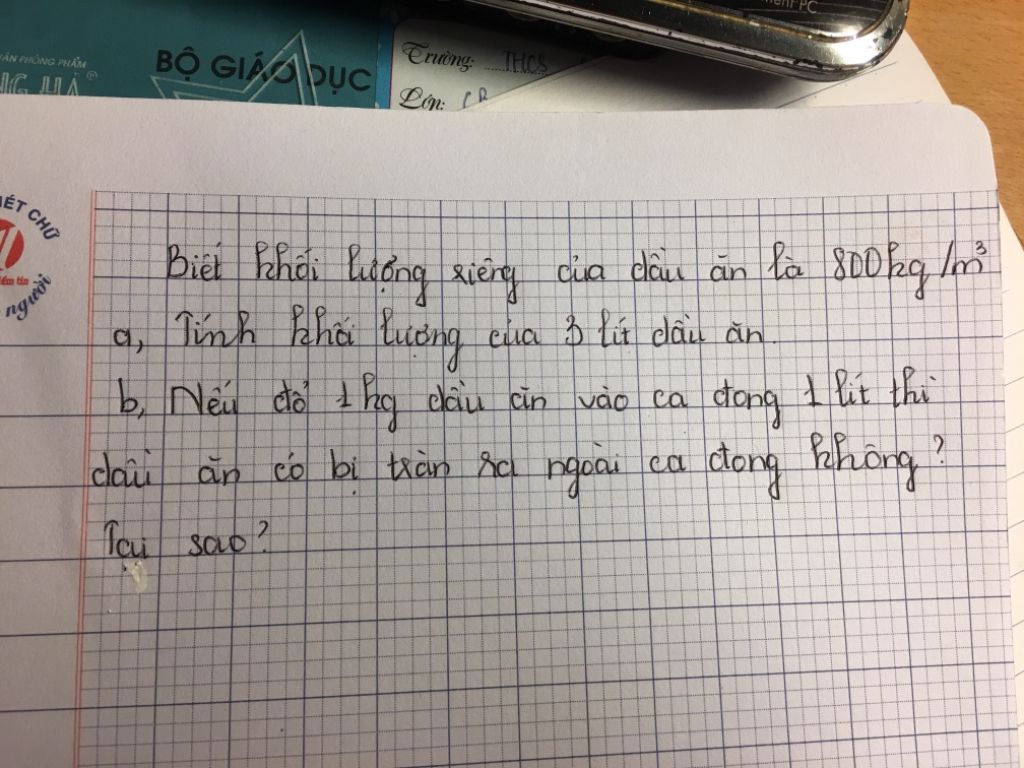 ment PC
VĂN PHÒNG PHẨM
NG HÀ®
BỘ GIÁO DỤC
Trường: THCS
Lớp: 6B
VIẾT CHỮ
người
Biết khối lượng riêng của dầu ăn là 800kg/m³
a, Tính khối lượng của 3 lít dầu ăn.
b, Nếu đổ 1kg dầu ăn vào ca đong 1 lít thì
dầu ăn có bị tràn ra ngoài ca đong không?
Tại sao?